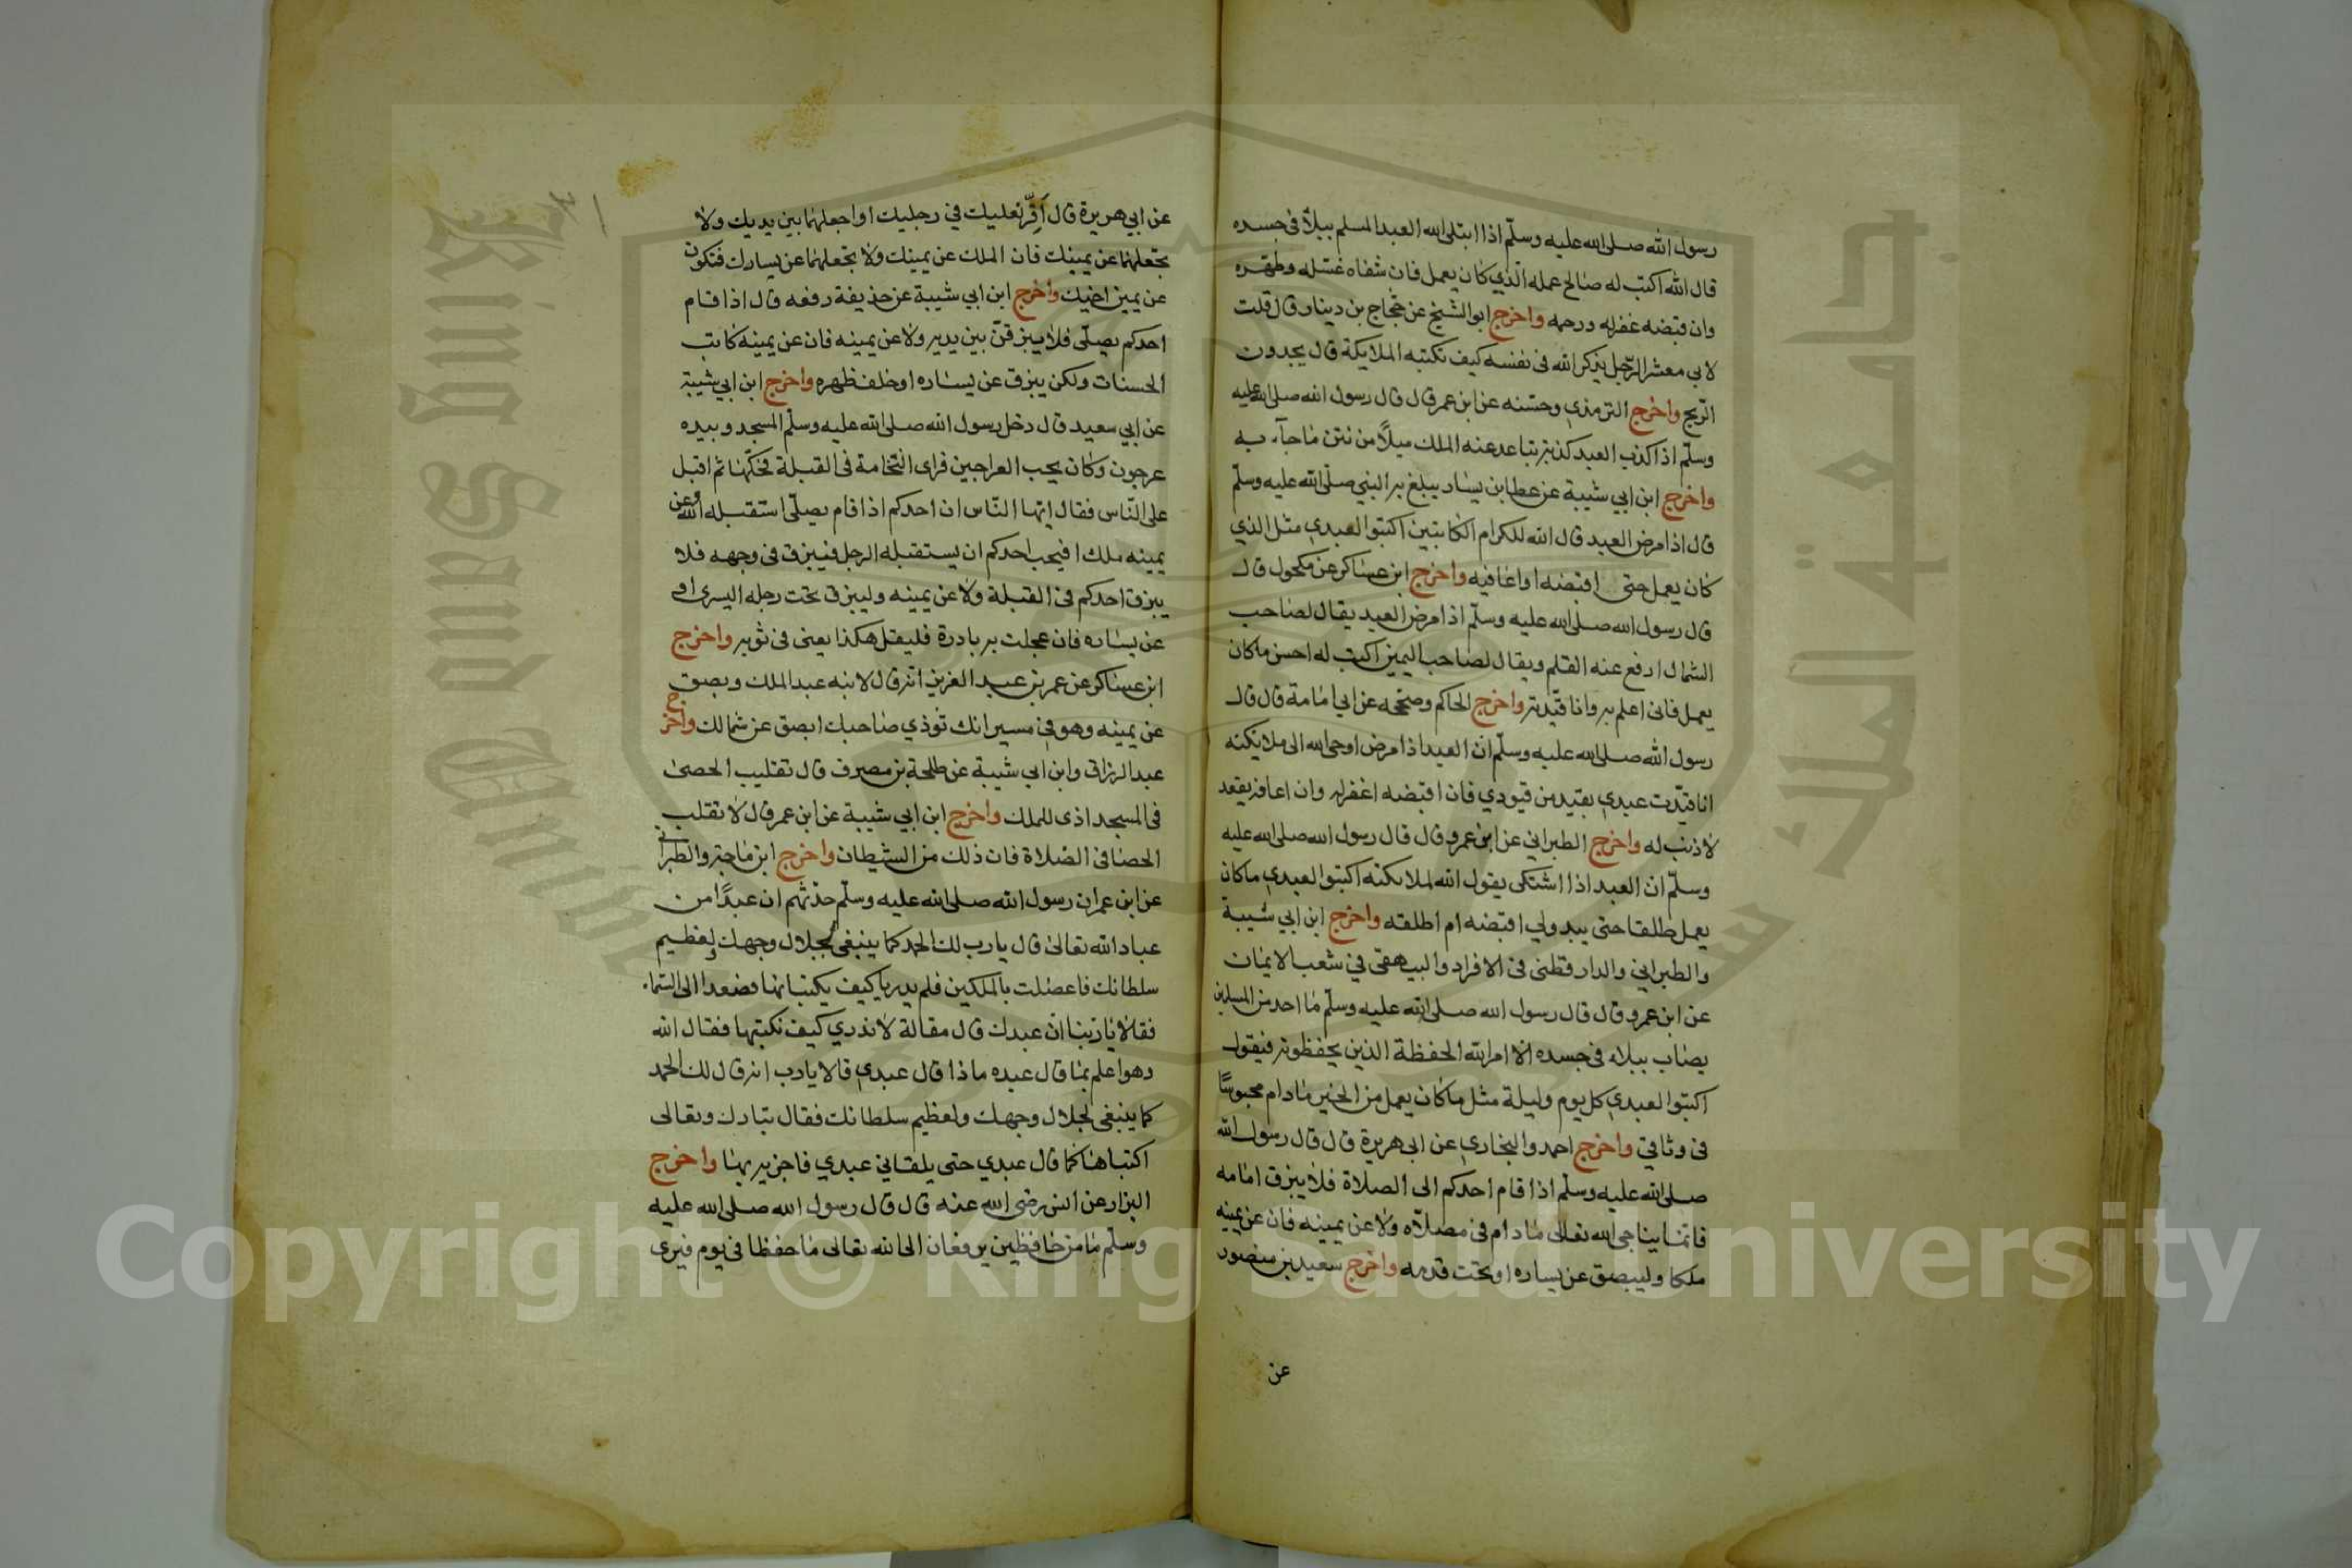 رسول الله صلى الله عليه وسلّم اذا ابتلى الله العبد المسلم ببلآ فى جسده
قال الله اكتب له صالح عمله الّذي كان يعمل فان شفاه غسّله وطهّره
وان قبضه غفر له ورحمه واخرج ابو الشيخ عن حجّاج بن دينار قال قلت
لابى معشر الرّجل يذكر الله فى نفسه كيف تكتبه الملايكة قال يجدون
الرّيح واخرج الترمذي وحسّنه عن ابن عمر قال قال رسول الله صلى الله عليه
وسلّم اذا كذب العبد كذبة تباعد عنه الملك ميلاً من نتن ما جآء به
واخرج ابن ابي شيبة عن عطا بن يسار يبلغ به النبي صلّى الله عليه وسلّم
قال اذا مرض العبد قال الله للكرام الكاتبين اكتبوا لعبدي مثل الذي
كان يعمل حتى اقبضه او اعافيه واخرج ابن عساكر عن مكحول قال
قال رسول الله صلى الله عليه وسلّم اذا مرض العبد يقال لصاحب
الشمال ارفع عنه القلم ويقال لصاحب اليمين اكتب له احسن ما كان
يعمل فانى اعلم به وانا قيّدته واخرج الحاكم وصحّحه عن ابي امامة قال قال
رسول الله صلى الله عليه وسلّم ان العبد اذا مرض اوحى الله الى ملائكته
انا قيّدت عبدي بقيد من قيودي فان اقبضه اغفر له وان اعافه يقعد
لا ذنب له واخرج الطبراني عن ابن عمرو قال قال رسول الله صلى الله عليه
وسلّم ان العبد اذا اشتكى يقول الله لملائكته اكتبوا لعبدي ما كان
يعمل طلقا حتى يبدو لي اقبضه ام اطلقه واخرج ابن ابي شيبة
والطبراني والدار قطنى فى الافراد والبيهقى في شعب الايمان
عن ابن عمرو قال قال رسول الله صلى الله عليه وسلّم ما احد من المسلمين
يصاب ببلاء فى جسده الا امر الله الحفظة الذين يحفظونه فيقول
اكتبوا لعبدي كل يوم وليلة مثل ما كان يعمل من الخير ما دام محبوسًا
فى وثاقي واخرج احمد والبخاري عن ابى هريرة قال قال رسول الله
صلى الله عليه وسلّم اذا قام احدكم الى الصلاة فلا يبزق امامه
فانّما يناجى الله تعالى ما دام فى مصلّاه ولا عن يمينه فان عن يمينه
ملكا وليبصق عن يساره او تحت قدمه واخرج سعيد بن منصور
عن
عن ابي هريرة قال اَقِرّ نعليك في رجليك او اجعلهما بين يديك ولا
تجعلهما عن يمينك فان الملك عن يمينك ولا تجعلهما عن يسارك فتكون
عن يمين اخيك واخرج ابن ابي شيبة عن حذيفة رفعه قال اذا قام
احدكم يصلّى فلا يبزقنّ بين يديه ولا عن يمينه فان عن يمينه كاتب
الحسنات ولكن يبزق عن يساره او خلف ظهره واخرج ابن ابي شيبة
عن ابي سعيد قال دخل رسول الله صلى الله عليه وسلّم المسجد وبيده
عرجون وكان يحب العراجين فراى النخامة فى القبلة فحكّها ثم اقبل
على النّاس فقال ايّها النّاس ان احدكم اذا قام يصلّى استقبله الله وعن
يمينه ملك افيحب احدكم ان يستقبله الرجل فيبزق فى وجهه فلا
يبزق احدكم فى القبلة ولا عن يمينه وليبزق تحت رجله اليسرى او
عن يساره فان عجلت به بادرة فليقل هكذا يعنى فى ثوبه واخرج
ابن عساكر عن عمر بن عبد العزيز انه قال لابنه عبد الملك وبصق
عن يمينه وهو في مسير انك تؤذي صاحبك ابصق عن شمالك واخرج
عبد الرزاق وابن ابي شيبة عن طلحة بن مصرف قال تقليب الحصى
فى المسجد اذى للملك واخرج ابن ابي شيبة عن ابن عمر قال لا تقلب
الحصا فى الصلاة فان ذلك من الشيطان واخرج ابن ماجة والطبراني
عن ابن عمر ان رسول الله صلى الله عليه وسلّم حدّثهم ان عبدًا من
عباد الله تعالى قال يا رب لك الحمد كما ينبغى لجلال وجهك ولعظيم
سلطانك فاعضلت بالملكين فلم يدريا كيف يكتبانها فصعدا الى السّماء
فقالا يا ربّنا انّ عبدك قال مقالة لا ندري كيف نكتبها فقال الله
وهو اعلم بما قال عبده ماذا قال عبدي قالا يا رب انه قال لك الحمد
كما ينبغى لجلال وجهك ولعظيم سلطانك فقال تبارك وتعالى
اكتباها كما قال عبدي حتى يلقاني عبدي فاجزيه بها واخرج
البزار عن انس رضى الله عنه قال قال رسول الله صلى الله عليه
وسلّم ما من حافظين يرفعان الى الله تعالى ما حفظا في يوم فيرى
جامعة الملك سعود
King Saud University
Copyright © King Saud University